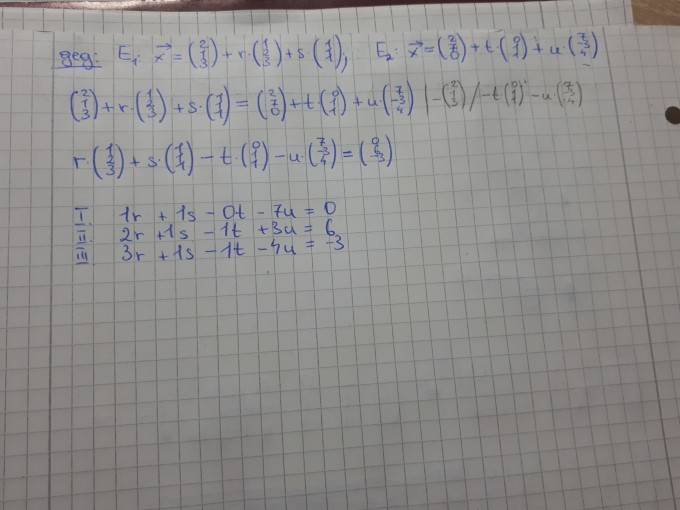 geg: E₁: x⃗ = (2 1 3) + r·(1 2 3) + s·(1 1 1), E₂: x⃗ = (2 7 0) + t·(0 1 1) + u·(7 -3 4)
(2 1 3) + r·(1 2 3) + s·(1 1 1) = (2 7 0) + t·(0 1 1) + u·(7 -3 4) |-(2 1 3) /-t(0 1 1) -u·(7 -3 4)
r·(1 2 3) + s·(1 1 1) - t·(0 1 1) - u·(7 -3 4) = (0 6 -3)
I 1r + 1s - 0t - 7u = 0
II 2r + 1s - 1t + 3u = 6
III 3r + 1s - 1t - 4u = -3